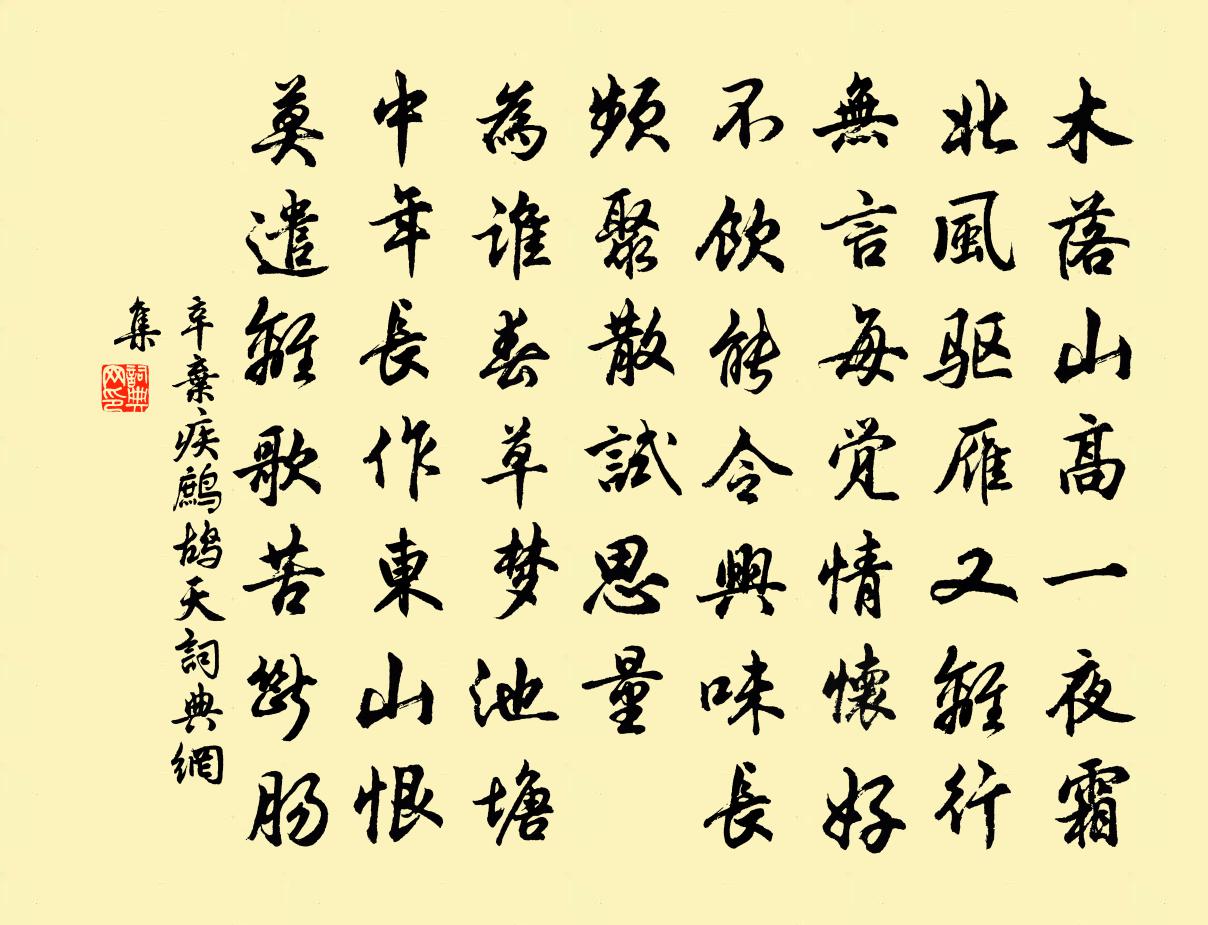 木落山高一夜霜
北風驱雁又離行
無言每覚情懷好
不飲能令興味長
頻聚散試思量
為誰春草梦池塘
中年長作東山恨
莫遣離歌苦斷腸
辛棄疾鷓鴣天詞典網
集
詞典网印